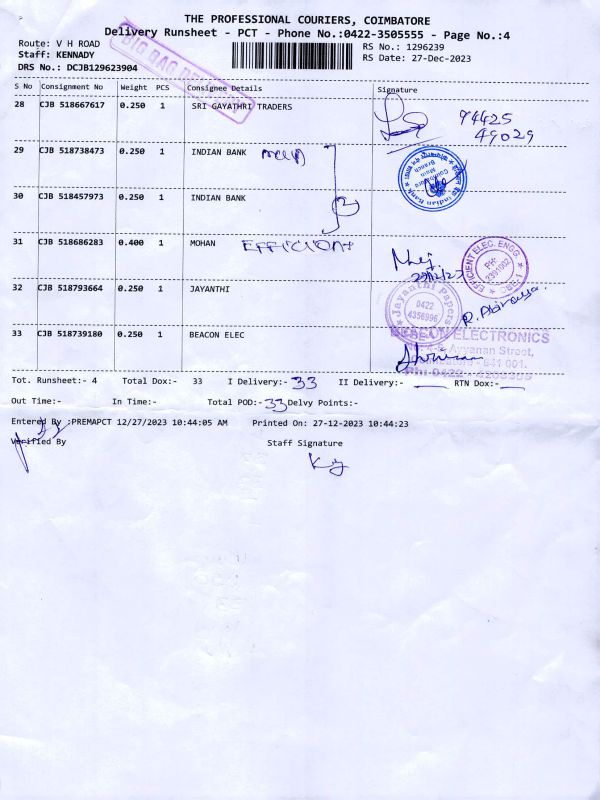 THE PROFESSIONAL COURIERS, COIMBATORE
Delivery Runsheet - PCT - Phone No.:0422-3505555 - Page No.:4
Route: V H ROAD RS No.: 1296239
Staff: KENNADY RS Date: 27-Dec-2023
DRS No.: DCJB129623904
BIG BAG
S No Consignment No Weight PCS Consignee Details Signature
28 CJB 518667617 0.250 1 SRI GAYATHRI TRADERS 94425
49029
29 CJB 518738473 0.250 1 INDIAN BANK
Indian Bank
Main Branch
30 CJB 518457973 0.250 1 INDIAN BANK
31 CJB 518686283 0.400 1 MOHAN EFFICIONT
EFFICIENT ELEC. ENGG.
PH:
2391002
CBE-1
32 CJB 518793664 0.250 1 JAYANTHI
Jayanthi Papers
0422
4356996
33 CJB 518739180 0.250 1 BEACON ELEC
BEACON ELECTRONICS
Ayyanan Street,
641 001.
Tot. Runsheet:- 4 Total Dox:- 33 I Delivery:- 33 II Delivery:- RTN Dox:-
Out Time:- In Time:- Total POD:- 33 Delvy Points:-
Entered By :PREMAPCT 12/27/2023 10:44:05 AM Printed On: 27-12-2023 10:44:23
Verified By Staff Signature